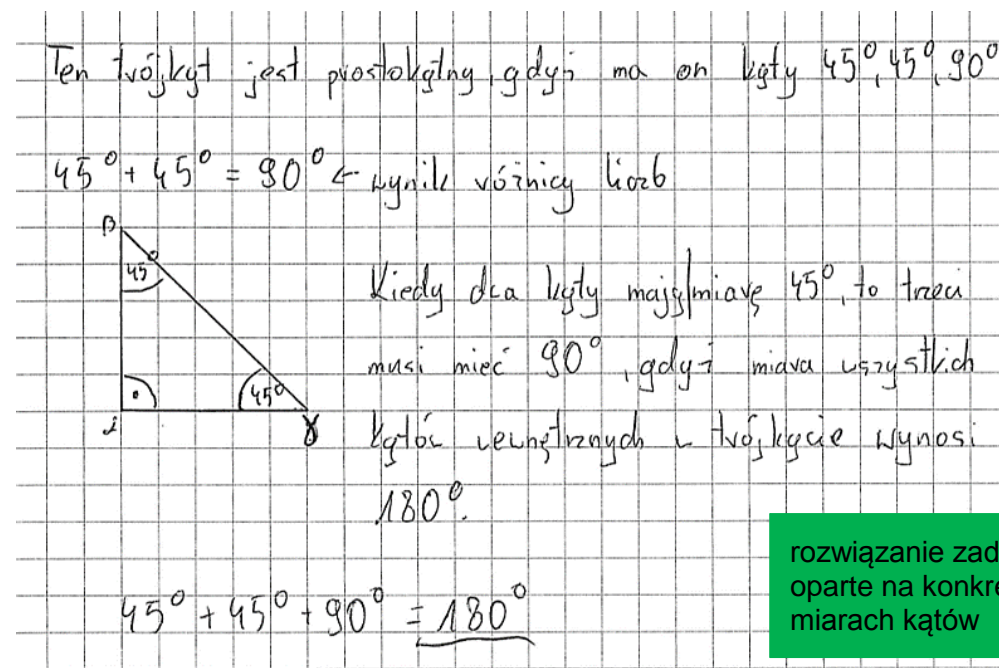 Ten trójkąt jest prostokątny, gdyż ma on kąty 45°, 45°, 90°
45° + 45° = 90° ← wynik różnicy liczb
β
45°
Kiedy dwa kąty mają miarę 45°, to trzeci
musi mieć 90°, gdyż miara wszystkich
45°
α
γ
kątów wewnętrznych w trójkącie wynosi
180°.
rozwiązanie zad
oparte na konkre
miarach kątów
45° + 45° + 90° = 180°